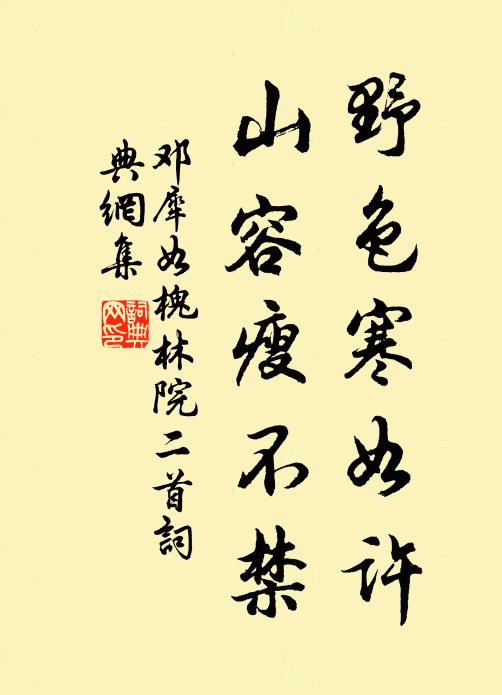 野色寒如许
山容瘦不禁
邓犀如槐林院二首詞
典網集
詞典网印